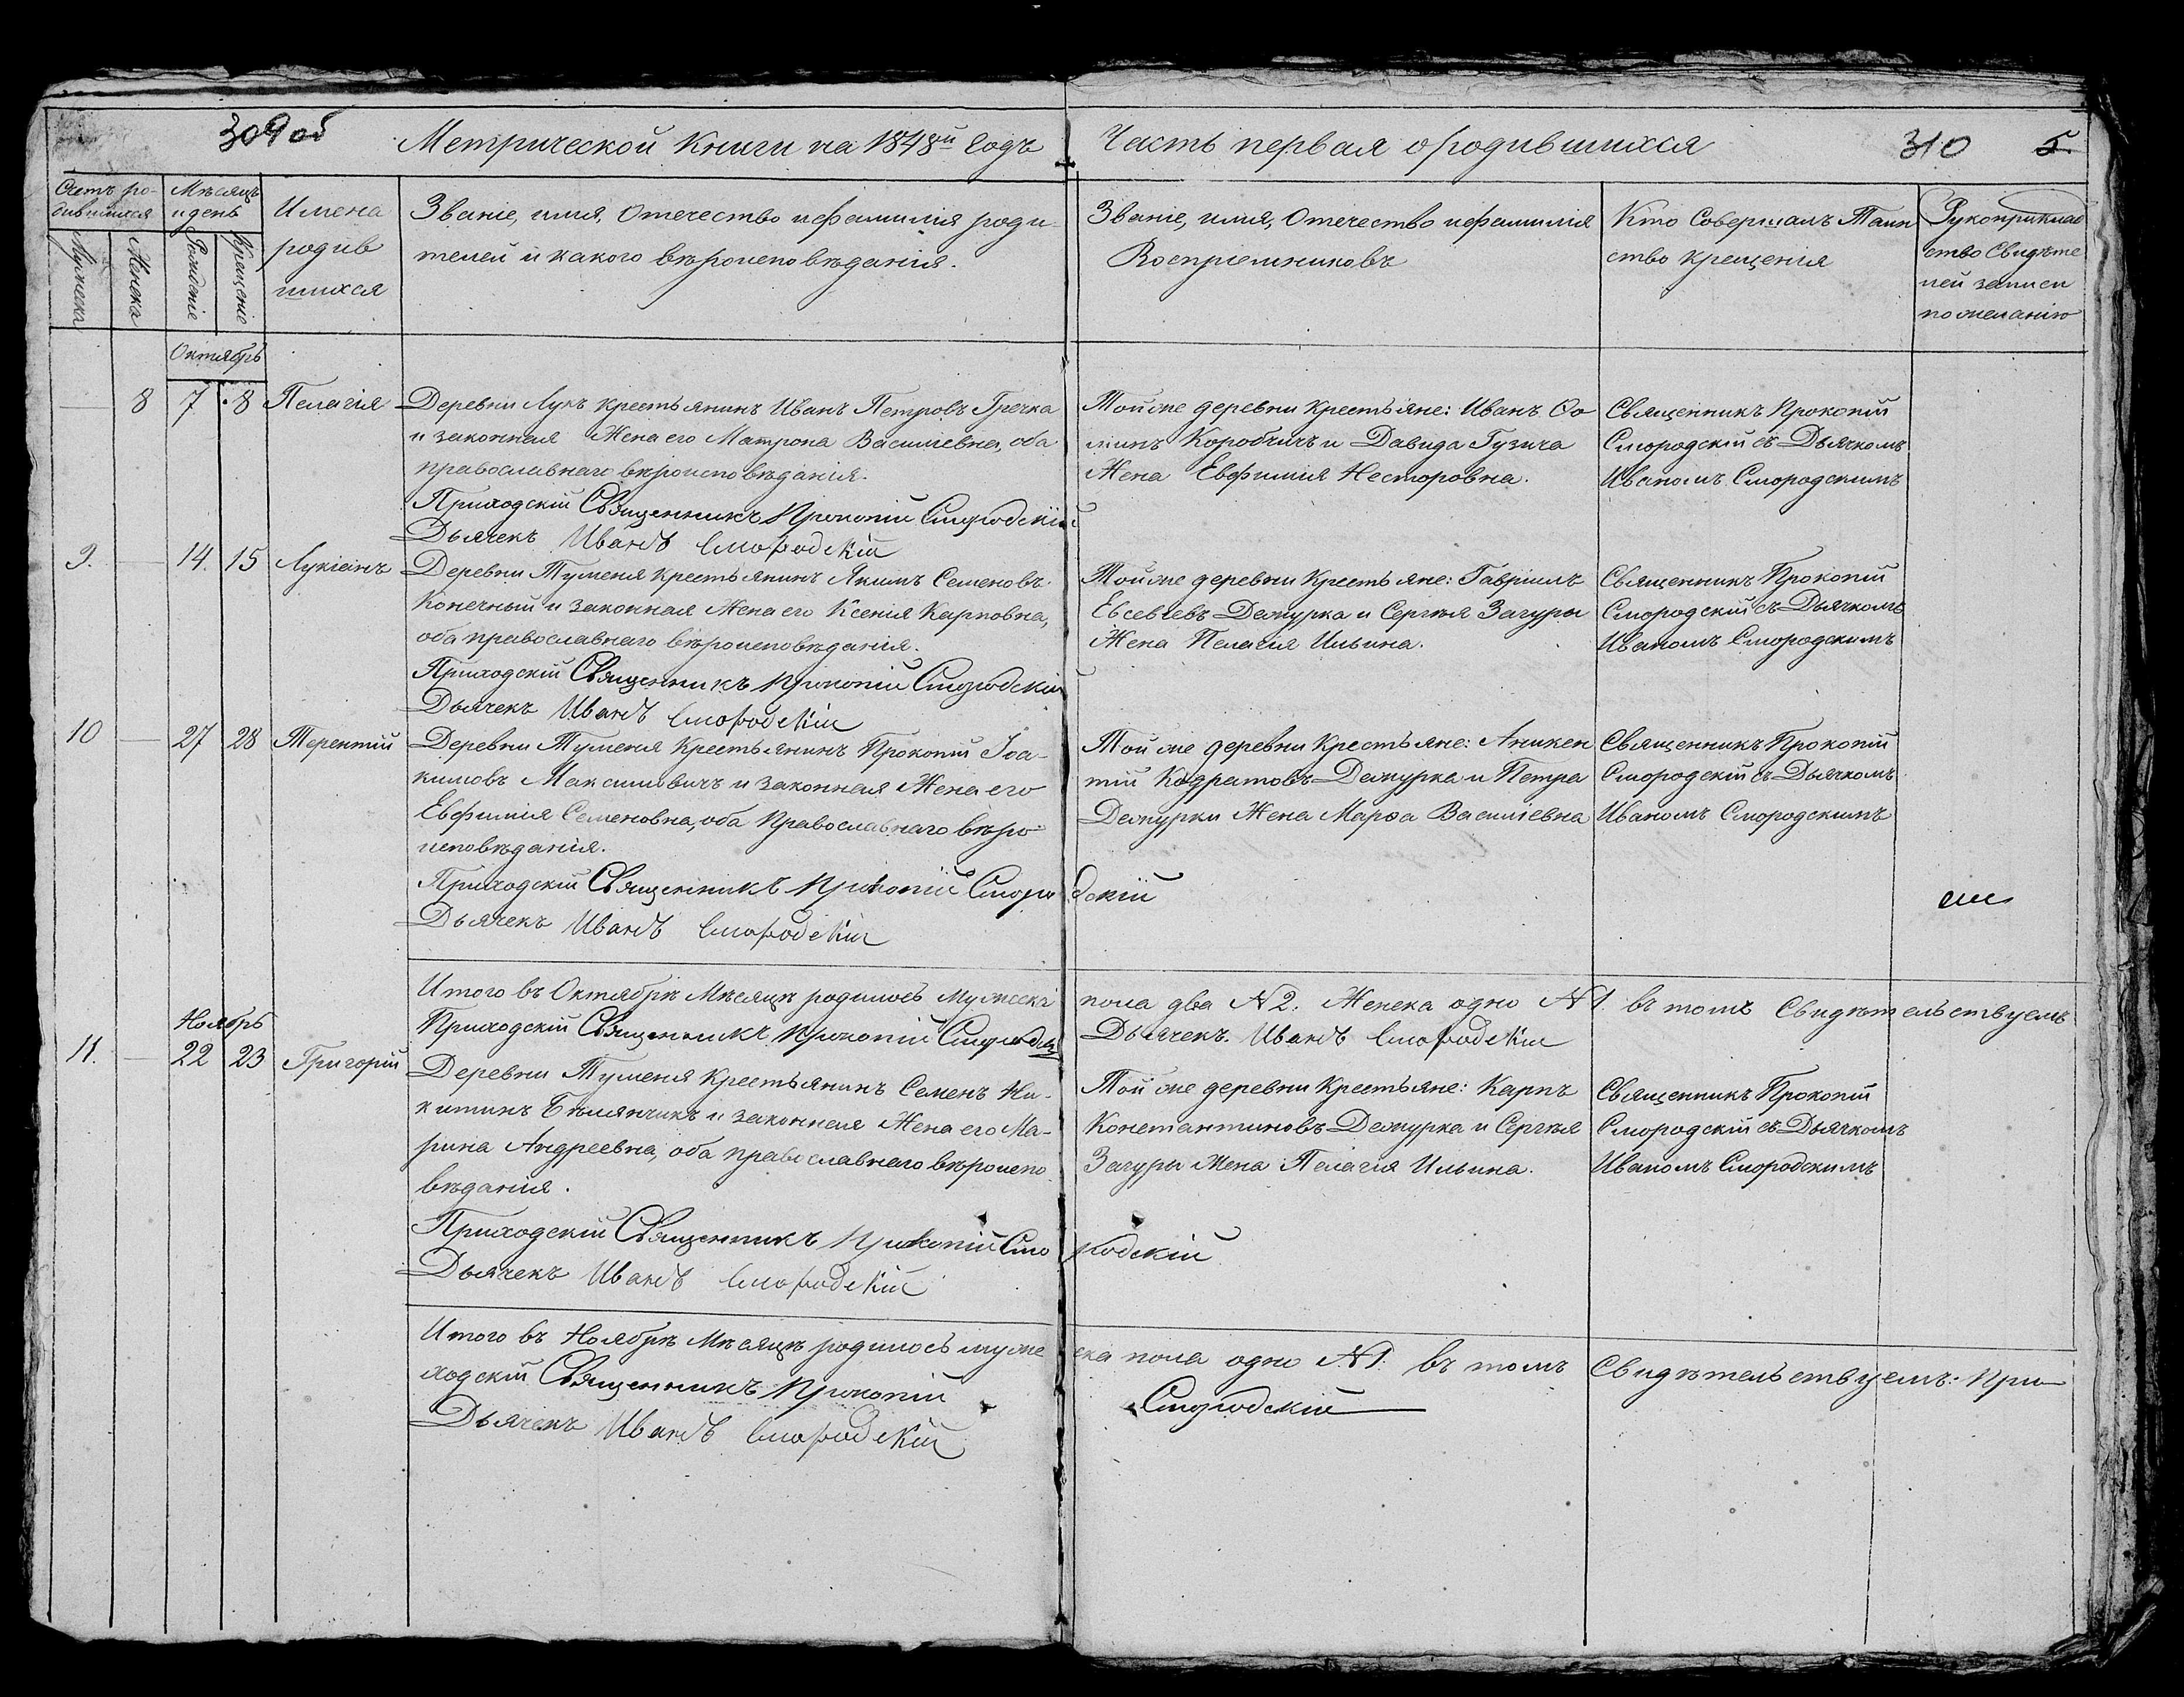 309 об
Метрической Книги на 1848й Годъ
Часть первая о родившихся
310
5.
Счетъ ро-
дившихся
Мѣсяцъ
и день
Имена
родив
шихся
Званіе, имя, Отечество и фамилія роди-
телей и какого вѣроисповѣданія.
Званіе, имя, Отечество и фамилія
Воспріемниковъ
Кто Совершалъ Таин
ство крещенія
Рукоприклад
ство Свидѣте
лей записи
по желанію
Мужеска
Женска
Рожденіе
Крещеніе
Октябрь
8 7 8 Пелагія
Деревни Лукъ крестьянинъ Иванъ Петровъ Гречка
и законная Жена его Матрона Василіевна, оба
православнаго вѣроисповѣданія.
Приходскій Священникъ Прокопій Смородскій
Дьячекъ Иванъ Смородскій
Той же деревни крестьяне: Иванъ Ѳо
минъ Коробчичъ и Давида Гузича
Жена Евфимія Несторовна.
Священникъ Прокопій
Смородскій съ Дьячкомъ
Иваномъ Смородскимъ
9. 14. 15 Лукіанъ
Деревни Туменя крестьянинъ Якимъ Семеновъ
Конечный и законная Жена его Ксенія Карповна,
оба православнаго вѣроисповѣданія.
Приходскій Священникъ Прокопій Смородскій
Дьячекъ Иванъ Смородскій
Той же деревни Крестьяне: Гавріилъ
Евсевіевъ Дежурка и Сергѣя Загуры
Жена Пелагія Ильина.
Священникъ Прокопій
Смородскій съ Дьячкомъ
Иваномъ Смородскимъ
10 27 28 Терентій
Деревни Туменя Крестьянинъ Прокопій Іоа-
кимовъ Максимовичъ и законная Жена его
Евфимія Семеновна, оба Православнаго вѣро-
исповѣданія.
Приходскій Священникъ Прокопій Смородскій
Дьячекъ Иванъ Смородскій
Той же деревни Крестьяне: Аникен
тій Кодратовъ Дежурка и Петра
Дежурки Жена Марѳа Василіевна
Священникъ Прокопій
Смородскій съ Дьячкомъ
Иваномъ Смородскимъ
Итого въ Октябрѣ Мѣсяцѣ родилось мужеска пола два N 2. Женска одно N 1. въ томъ Свидѣтельствуемъ
Приходскій Священникъ Прокопій Смородскій
Дьячекъ. Иванъ Смородскій
Ноябрь
11. 22 23 Григорій
Деревни Туменя крестьянинъ Семенъ Ни-
китинъ Бѣлянчикъ и законная Жена его Ма-
рина Андреевна, оба православнаго вѣроиспо
вѣданія.
Приходскій Священникъ Прокопій Смородскій
Дьячекъ Иванъ Смородскій
Той же деревни Крестьяне: Карпъ
Константиновъ Дежурка и Сергѣя
Загуры Жена Пелагія Ильина.
Священникъ Прокопій
Смородскій съ Дьячкомъ
Иваномъ Смородскимъ
Итого въ Ноябрѣ Мѣсяцѣ родилось мужеска пола одно N 1. въ томъ Свидѣтельствуемъ: При-
ходскій Священникъ Прокопій Смородскій
Дьячекъ Иванъ Смородскій